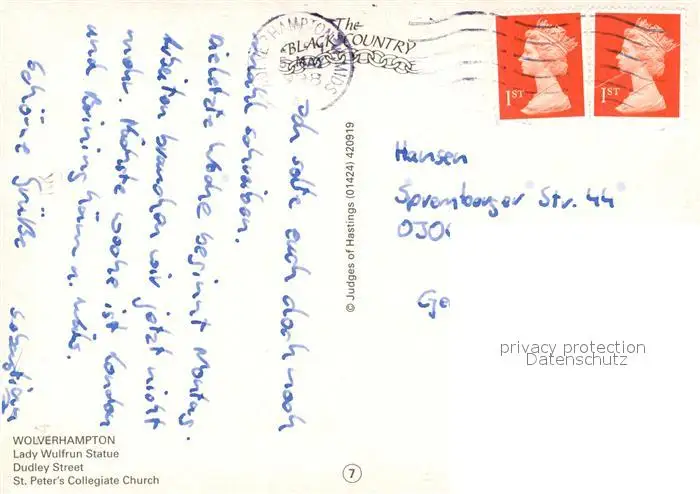 WOLVERHAMPTON W MIDS
The
BLACK COUNTRY
MAY
1ST
1ST
Ich sollte euch doch noch
mal schreiben.
Die letzte Woche beginnt Montag.
Arbeiten brauchen wir jetzt nicht
mehr. Nächste Woche ist London
und Reining
schöne Grüße
Sebastian
© Judges of Hastings (01424) 420919
Hansen
Spremberger Str. 44
Ge
privacy protection
Datenschutz
WOLVERHAMPTON
Lady Wulfrun Statue
Dudley Street
St. Peter's Collegiate Church
7